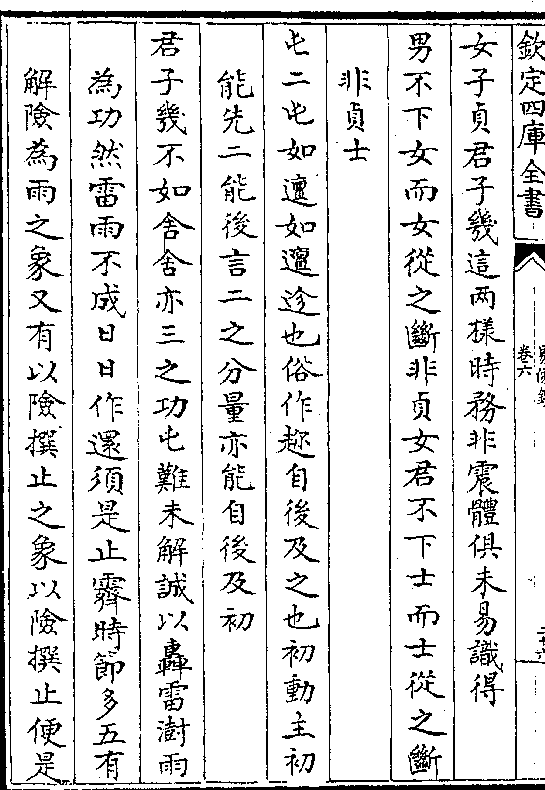 欽定四庫全書
卷六
女子貞君子幾這兩樣時務非震體俱未易識得
男不下女而女從之斷非貞女君不下士而士從之斷
非貞士
屯二屯如邅如邅迍也俗作趂自後及之也初動主初
能先二能後言二之分量亦能自後及初
君子幾不如舍舍亦三之功屯難未解誠以轟雷澍雨
為功然雷雨不成日日作還須是止霽時節多五有
解險為雨之象又有以險撰止之象以險撰止便是